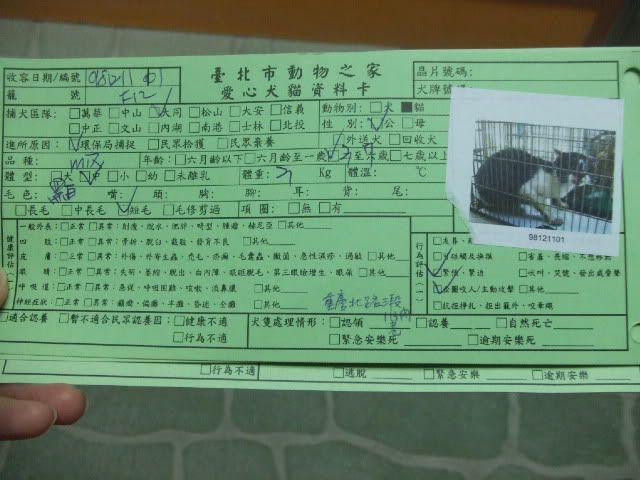 臺北市動物之家
愛心犬貓資料卡
收容日期/編號 981211 01
籠號 F12
晶片號碼:
犬牌號
捕犬區隊: □萬華 □中山 □大同 □松山 □大安 □信義
□中正 □文山 □內湖 □南港 □士林 □北投
動物別: □犬 ■貓
性別: □公 □母
進所原因: □環保局捕捉 □民眾拾獲 □民眾棄養 □外送犬 □回收犬
品種: mix 年齡: □六月齡以下 □六月齡至一歲 □七歲以上
體型: □大 □中 □小 □幼 □未離乳 體重: Kg 體溫: ℃
毛色: 嘴: 頭: 胸: 腳: 耳: 背: 尾:
□長毛 □中長毛 □短毛 □毛修剪過 項圈: □無 □有
98121101
健康評估
一般外表: □正常 □異常: 削瘦、脫水、肥胖、畸型、腫瘤、赫尼亞 □其他
四肢: □正常 □異常: 骨折、脫臼、截肢、發育不良 □其他
皮膚: □正常 □異常: 外傷、外寄生蟲、禿毛、疥癬、毛囊蟲、黴菌、急性濕疹、過敏 □其他
眼睛: □正常 □異常: 失明、萎縮、脫出、白內障、眼瞼脫毛、第三眼瞼增生、眼屎 □其他
呼吸道: □正常 □異常: 急促、呼吸困難、咳嗽、流鼻膿 □其他
神經症狀: □正常 □異常: 癲癇、偏癱、半癱、昏迷、全癱 □其他
行為評估(一)
□緊張、緊迫 □吠叫、哭號、發出威脅聲
□企圖咬人/主動攻擊 □其他
□抗拒掙扎、拒出籠外、咬牽繩
□適合認養 □暫不適合民眾認養因: □健康不適
□行為不適
犬隻處理情形: □認領 □認養 □自然死亡
□緊急安樂死 □逾期安樂死
□行為不適 □逃脫 □緊急安樂 □逾期安樂